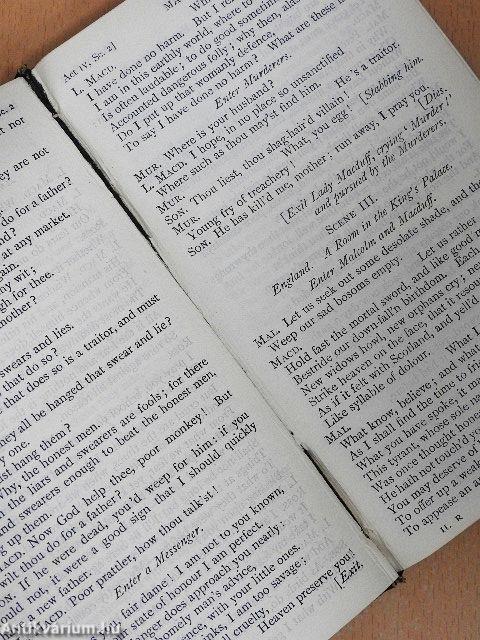 sc. 2
not
hey are not
do for a father?
nd?
at any market.
gain.
hy wit;
gh for thee.
nother?
swears and lies.
that do so?
that does so is a traitor, and must
ney all be hanged that swear and lie?
y one.
ust hang them?
Why, the honest men.
n the liars and swearers are fools; for there
and swearers enough to beat the honest men,
g up them.
MACD. Now God help thee, poor monkey! But
wilt thou do for a father?
ON. If he were dead, you'd weep for him: if you
ould not, it were a good sign that I should quickly
a new father.
Poor prattler, how thou talk'st!
Enter a Messenger.
fair dame! I am not to you known,
r state of honour I am perfect.
danger does approach you nearly:
homely man's advice,
with your little ones.
I am too savage;
cruelty,
Heaven preserve you!
[Exit.
Act IV. Sc. 2]
MA
L. MACD.
I have done no harm. But I re
I am in this earthly world; where to
Is often laudable; to do good sometim
Accounted dangerous folly; why then, alas
Do I put up that womanly defence,
To say I have done no harm? What are these
Enter Murderers.
MUR. Where is your husband?
L. MACD. I hope, in no place so unsanctified
Where such as thou may'st find him.
MUR. He's a traitor.
SON. Thou liest, thou shag-hair'd villain!
MUR. What, you egg! [Stabbing him.
Young fry of treachery!
SON. He has kill'd me, mother; run away, I pray you. [Dies.
[Exit Lady Macduff, crying 'Murder,'
and pursued by the Murderers.
SCENE III.
England. A Room in the King's Palace.
Enter Malcolm and Macduff.
MAL. Let us seek out some desolate shade, and the
Weep our sad bosoms empty.
MACD. Let us rather
Hold fast the mortal sword, and like good m
Bestride our down-fall'n birthdom. Each
New widows howl, new orphans cry, ne
Strike heaven on the face, that it resou
As if it felt with Scotland, and yell'd
Like syllable of dolour.
MAL. What I
What know, believe; and what
As I shall find the time to frie
What you have spoke, it may
This tyrant, whose sole na
Was once thought hones
He hath not touch'd y
You may deserve of
To offer up a weak
To appease an an
H. R
Antikvarium.hu